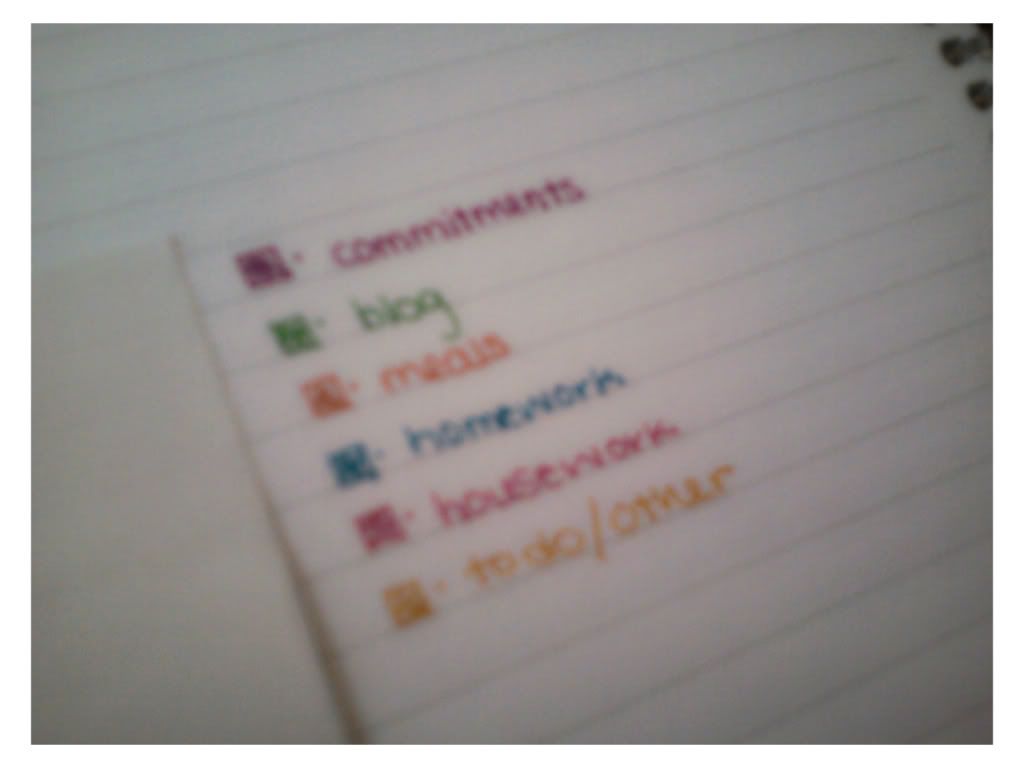 - commitments
- blog
- meals
- homework
- housework
- to do/other